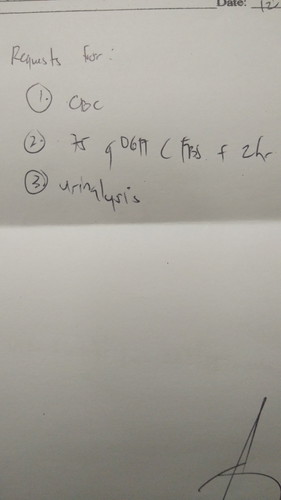 Date: 12
Requests for:
1. CBC
2. 75 g OGTT ( FBS + 2hr
3. urinalysis